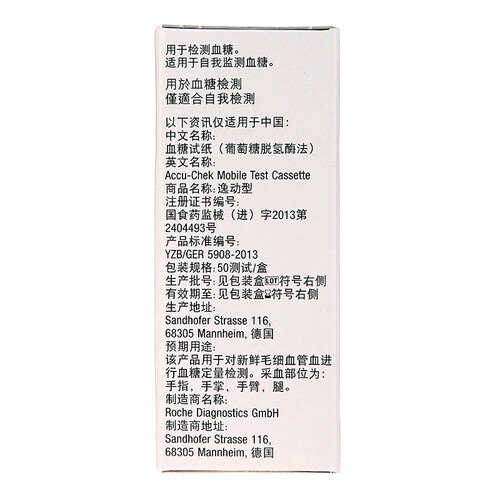 用于检测血糖。
适用于自我监测血糖。
用於血糖檢測
僅適合自我檢測
以下资讯仅适用于中国：
中文名称：
血糖试纸（葡萄糖脱氢酶法）
英文名称：
Accu-Chek Mobile Test Cassette
商品名称：逸动型
注册证书编号：
国食药监械（进）字2013第
2404493号
产品标准编号：
YZB/GER 5908-2013
包装规格：50测试/盒
生产批号：见包装盒LOT符号右侧
有效期至：见包装盒⌛符号右侧
生产地址：
Sandhofer Strasse 116,
68305 Mannheim, 德国
预期用途：
该产品用于对新鲜毛细血管血进
行血糖定量检测。采血部位为：
手指，手掌，手臂，腿。
制造商名称：
Roche Diagnostics GmbH
制造商地址：
Sandhofer Strasse 116,
68305 Mannheim, 德国